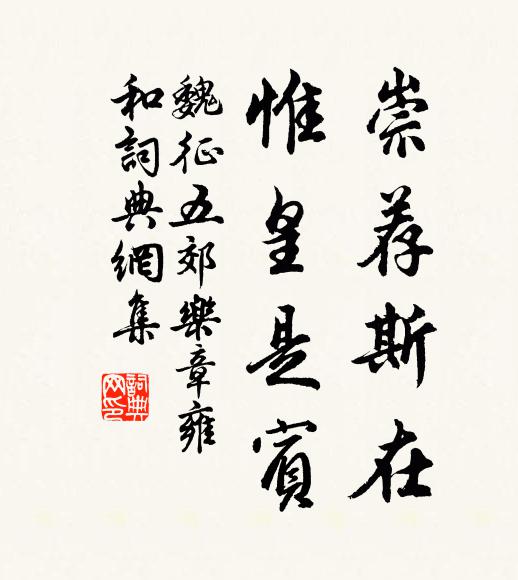 崇荐斯在
惟皇是賓
魏征五郊樂章雍
和詞典網集
詞典网印